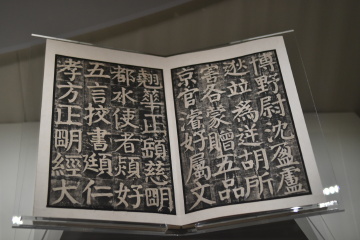 博野尉沈盈盧
逖並為逆胡所
害各蒙贈五品
京官濬好屬文
翹華正慈明
都水使者好
五言校書頲仁
孝方正明經大